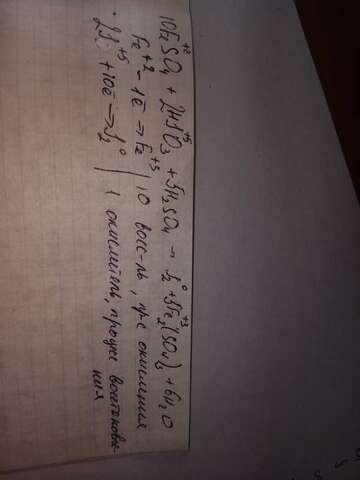 10FeSO₄⁺² + 2HJ⁺⁵O₃ + 5H₂SO₄ → J₂⁰ + 5Fe₂⁺³(SO₄)₃ + 6H₂O
Fe⁺² - 1ē → Fe⁺³ | 10 восс-ль, пр-с окисления
2J⁺⁵ + 10ē → J₂⁰ | 1 окислитель, процесс восстановле-
ния